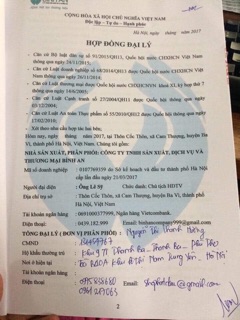 CỘNG HÒA XÃ HỘI CHỦ NGHĨA VIỆT NAM
Độc lập – Tự do – Hạnh phúc
Hà Nội, ngày tháng năm 2017
HỢP ĐỒNG ĐẠI LÝ
- Căn cứ Bộ luật dân sự số 91/2015/QH13, Quốc hội nước CHXHCN Việt Nam
thông qua ngày 24/11/2015;
- Căn cứ Luật doanh nghiệp số 68/2014/QH13 được Quốc hội nước CHXHCN Việt Nam
thông qua ngày 26/11/2014;
- Căn cứ Luật thương mại được Quốc hội nước CHXHCN khoá XI, kỳ họp thứ 7
thông qua ngày
- Căn cứ Luật Cạnh tranh số 27/2004/QH11 được Quốc hội thông qua ngày
03/12/2004;
- Căn cứ Luật An toàn Thực phẩm số 55/2010/QH12 được Quốc hội thông qua ngày
- Xét theo nhu cầu hợp tác hai bên,
Hôm nay, ngày tháng năm 2017, tại Thôn Cốc Thôn, xã Cam Thượng, huyện Ba Vì,
thành phố Hà Nội, Việt Nam. Chúng tôi gồm:
NHÀ SẢN XUẤT, PHÂN PHỐI: CÔNG TY TNHH SẢN XUẤT, DỊCH VỤ VÀ
THƯƠNG MẠI BÌNH AN
Mã số doanh nghiệp : 0107769359 do Sở kế hoạch và đầu tư thành phố Hà Nội
cấp lần đầu ngày 21/03/2017
Người đại diện : Ông Lê Sỹ Chức danh: Chủ tịch HĐTV
Địa chỉ : Thôn Cốc Thôn, xã Cam Thượng, huyện Ba Vì, thành phố
Hà Nội, Việt Nam
Tài khoản ngân hàng : Ngân hàng Vietinbank
Điện thoại : 0439.182.999 Email:
TỔNG ĐẠI LÝ (ĐƠN VỊ PHÂN PHỐI): Nguyễn Thị Thanh
CMND :
Hộ khẩu thường trú : Khu 9 TT Thanh Ba - Thanh Ba - Phú Thọ
Nơi ở hiện tại :
Tài khoản ngân hàng :
Điện thoại : Email:
2